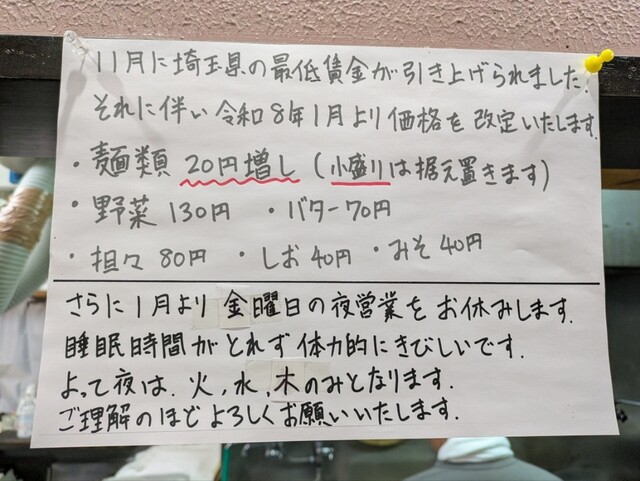 11月に埼玉県の最低賃金が引き上げられました.
それに伴い令和8年1月より価格を改定いたします.
・麺類 20円増し (小盛りは据え置きます)
・野菜 130円 ・バター70円
・担々 80円 ・しお40円 ・みそ40円
さらに1月より金曜日の夜営業をお休みします.
睡眠時間がとれず体力的にきびしいです.
よって夜は.火,水,木のみとなります.
ご理解のほどよろしくお願いいたします.